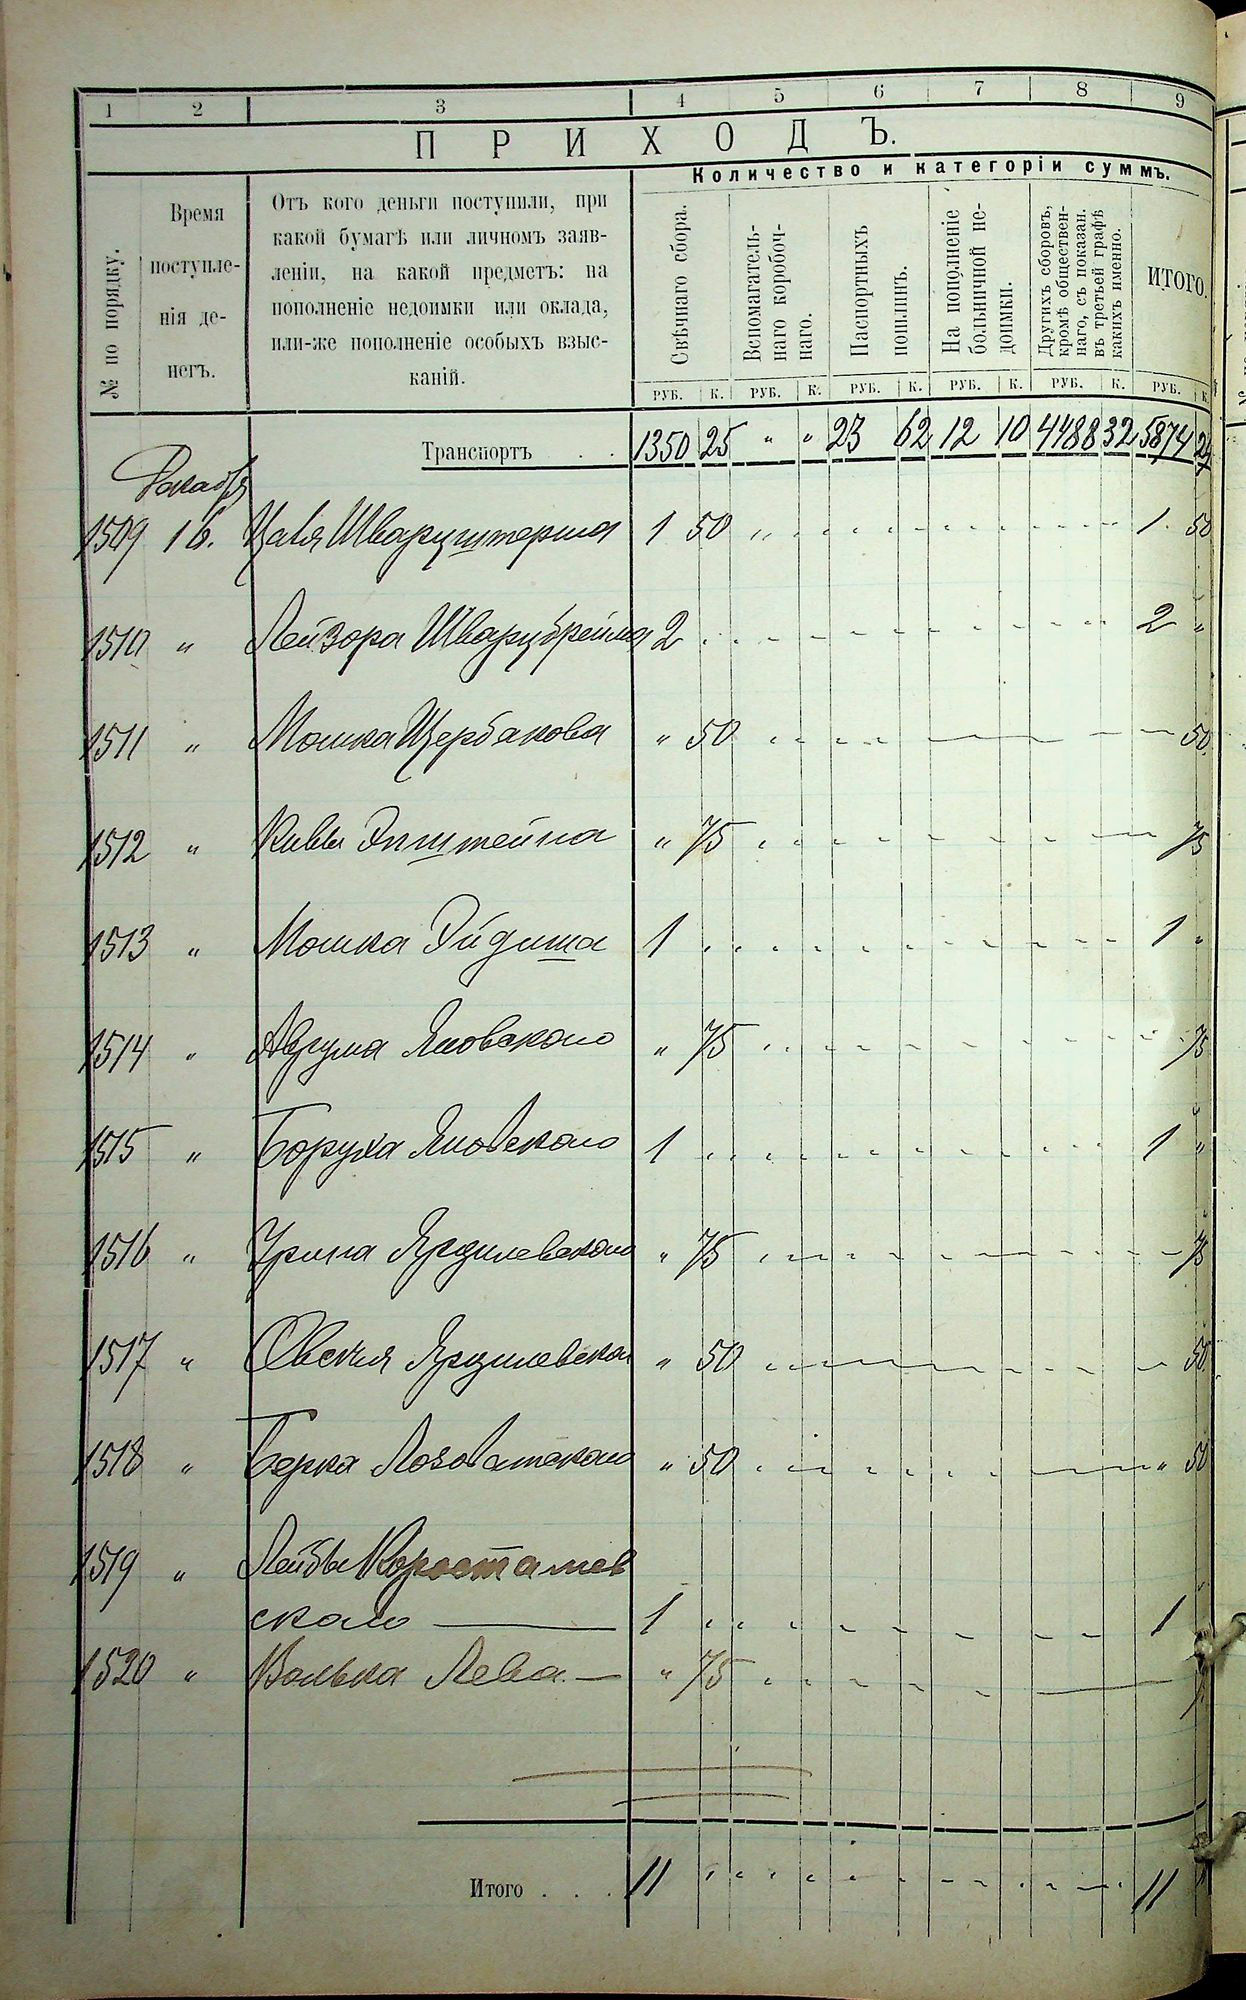 1 2 3 4 5 6 7 8 9
ПРИХОДЪ.
Количество и категоріи суммъ.
№ по порядку.
Время поступле-
нія де-
негъ.
Отъ кого деньги поступили, при
какой бумагѣ или личномъ заяв-
леніи, на какой предметъ: на
пополненіе недоимки или оклада,
или-же пополненіе особыхъ взыс-
каній.
Свѣчнаго сбора.
Вспомагатель-
наго коробоч-
наго.
Паспортныхъ
пошлинъ.
На пополненіе
больничной не-
доимки.
Другихъ сборовъ,
кромѣ обществен-
наго, съ показан.
въ третьей графѣ
какихъ именно.
ИТОГО.
РУБ. К. РУБ. К. РУБ. К. РУБ. К. РУБ. К. РУБ. К.
Транспортъ . . 1350 25 " " 23 62 12 10 4488 32 5874 29
Декабря
1509 16. Шварцштерма 1 50 1 50
1510 " Лейзора Шварцбрейма 2 2 "
1511 " Мошка Щербакова " 50 50
1512 " Кивы Эпштейна " 75 75
1513 " Мошка Эйдиша 1 1 "
1514 " Аврума Яновскаго " 75 75
1515 " Боруха Яновскаго 1 1 "
1516 " Ярдилевскаго " 75 75
1517 " Овсея " 50 50
1518 " Берка Лозоватскаго " 50 " 50
1519 " Лейбы Коросташев
скаго 1 1 "
1520 " Волька Лева " 75 75
Итого . . . 11 11 "